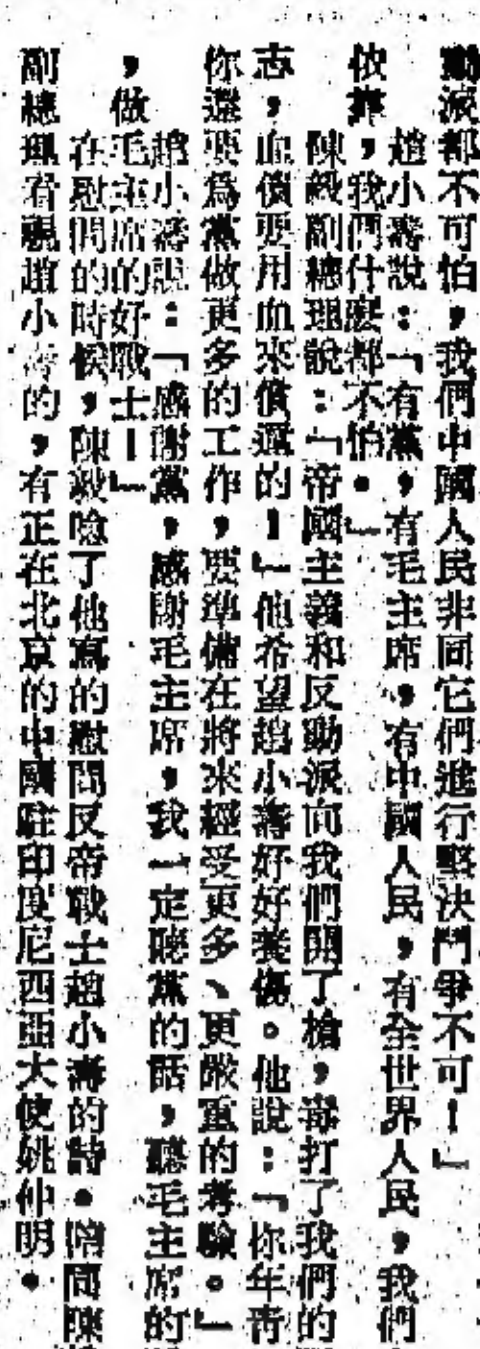 動派都不可怕，我們中國人民非同它們進行堅決鬥爭不可！」
趙小壽說：「有黨，有毛主席，有中國人民，有全世界人民，我們
依靠，我們什麽都不怕。」
陳毅副總理說：「帝國主義和反動派向我們開了槍，毒打了我們的
志，血債要用血來償還的！」他希望趙小壽好好養傷。他說：「你年青
你還要爲黨做更多的工作，要準備在將來經受更多、更嚴重的考驗。」
趙小壽說：「感謝黨，感謝毛主席，我一定聽黨的話，聽毛主席的
，做毛主席的好戰士！」
在慰問的時候，陳毅唸了他寫的慰問反帝戰士趙小壽的詩。陪同陳
副總理看望趙小壽的，有正在北京的中國駐印度尼西亞大使姚仲明。